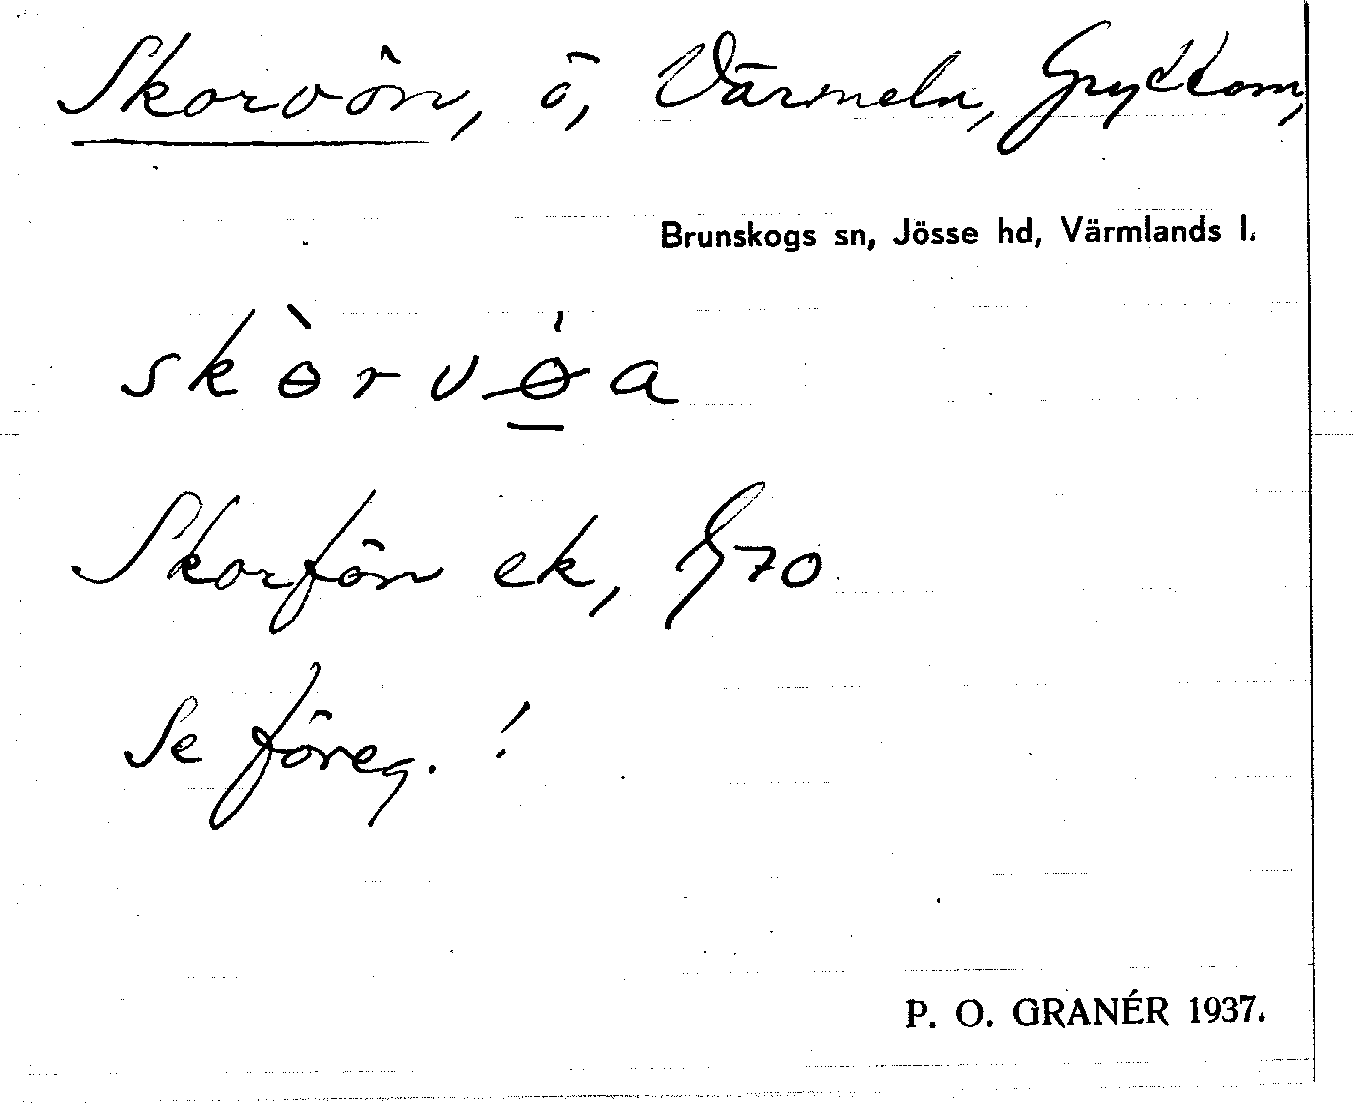 Skorvön, ö, Värmeln, Gryttom,
Brunskogs sn, Jösse hd, Värmlands l.
skɵ̀rvǿ̱a
Skorfön ek, G70
Se föreg. !
P. O. GRANÉR 1937.